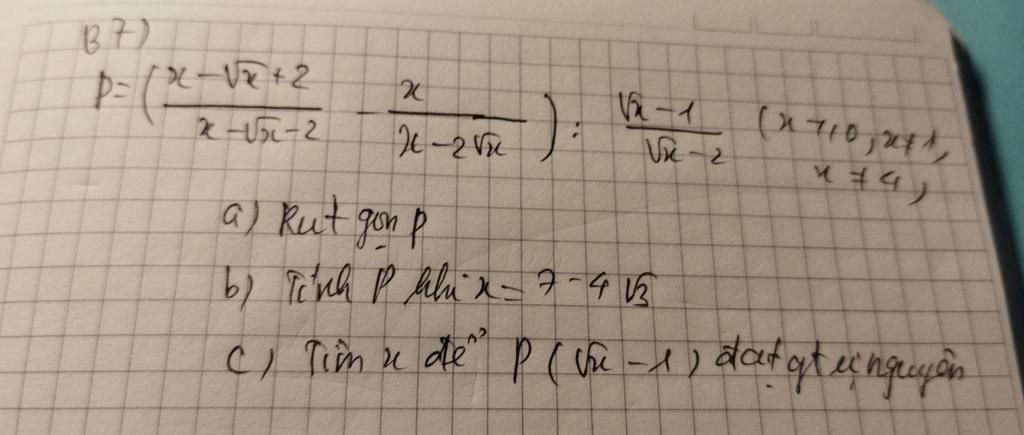 B7)
P = ( (x - √x + 2)/(x - √x - 2) - x/(x - 2√x) ) : (√x - 1)/(√x - 2) (x ≥ 0, x ≠ 1,
x ≠ 4,
a) Rut gọn P
b) Tính P khi x = 7 - 4√3
c) Tìm x để P (√x - 1) đạt gt nguyên